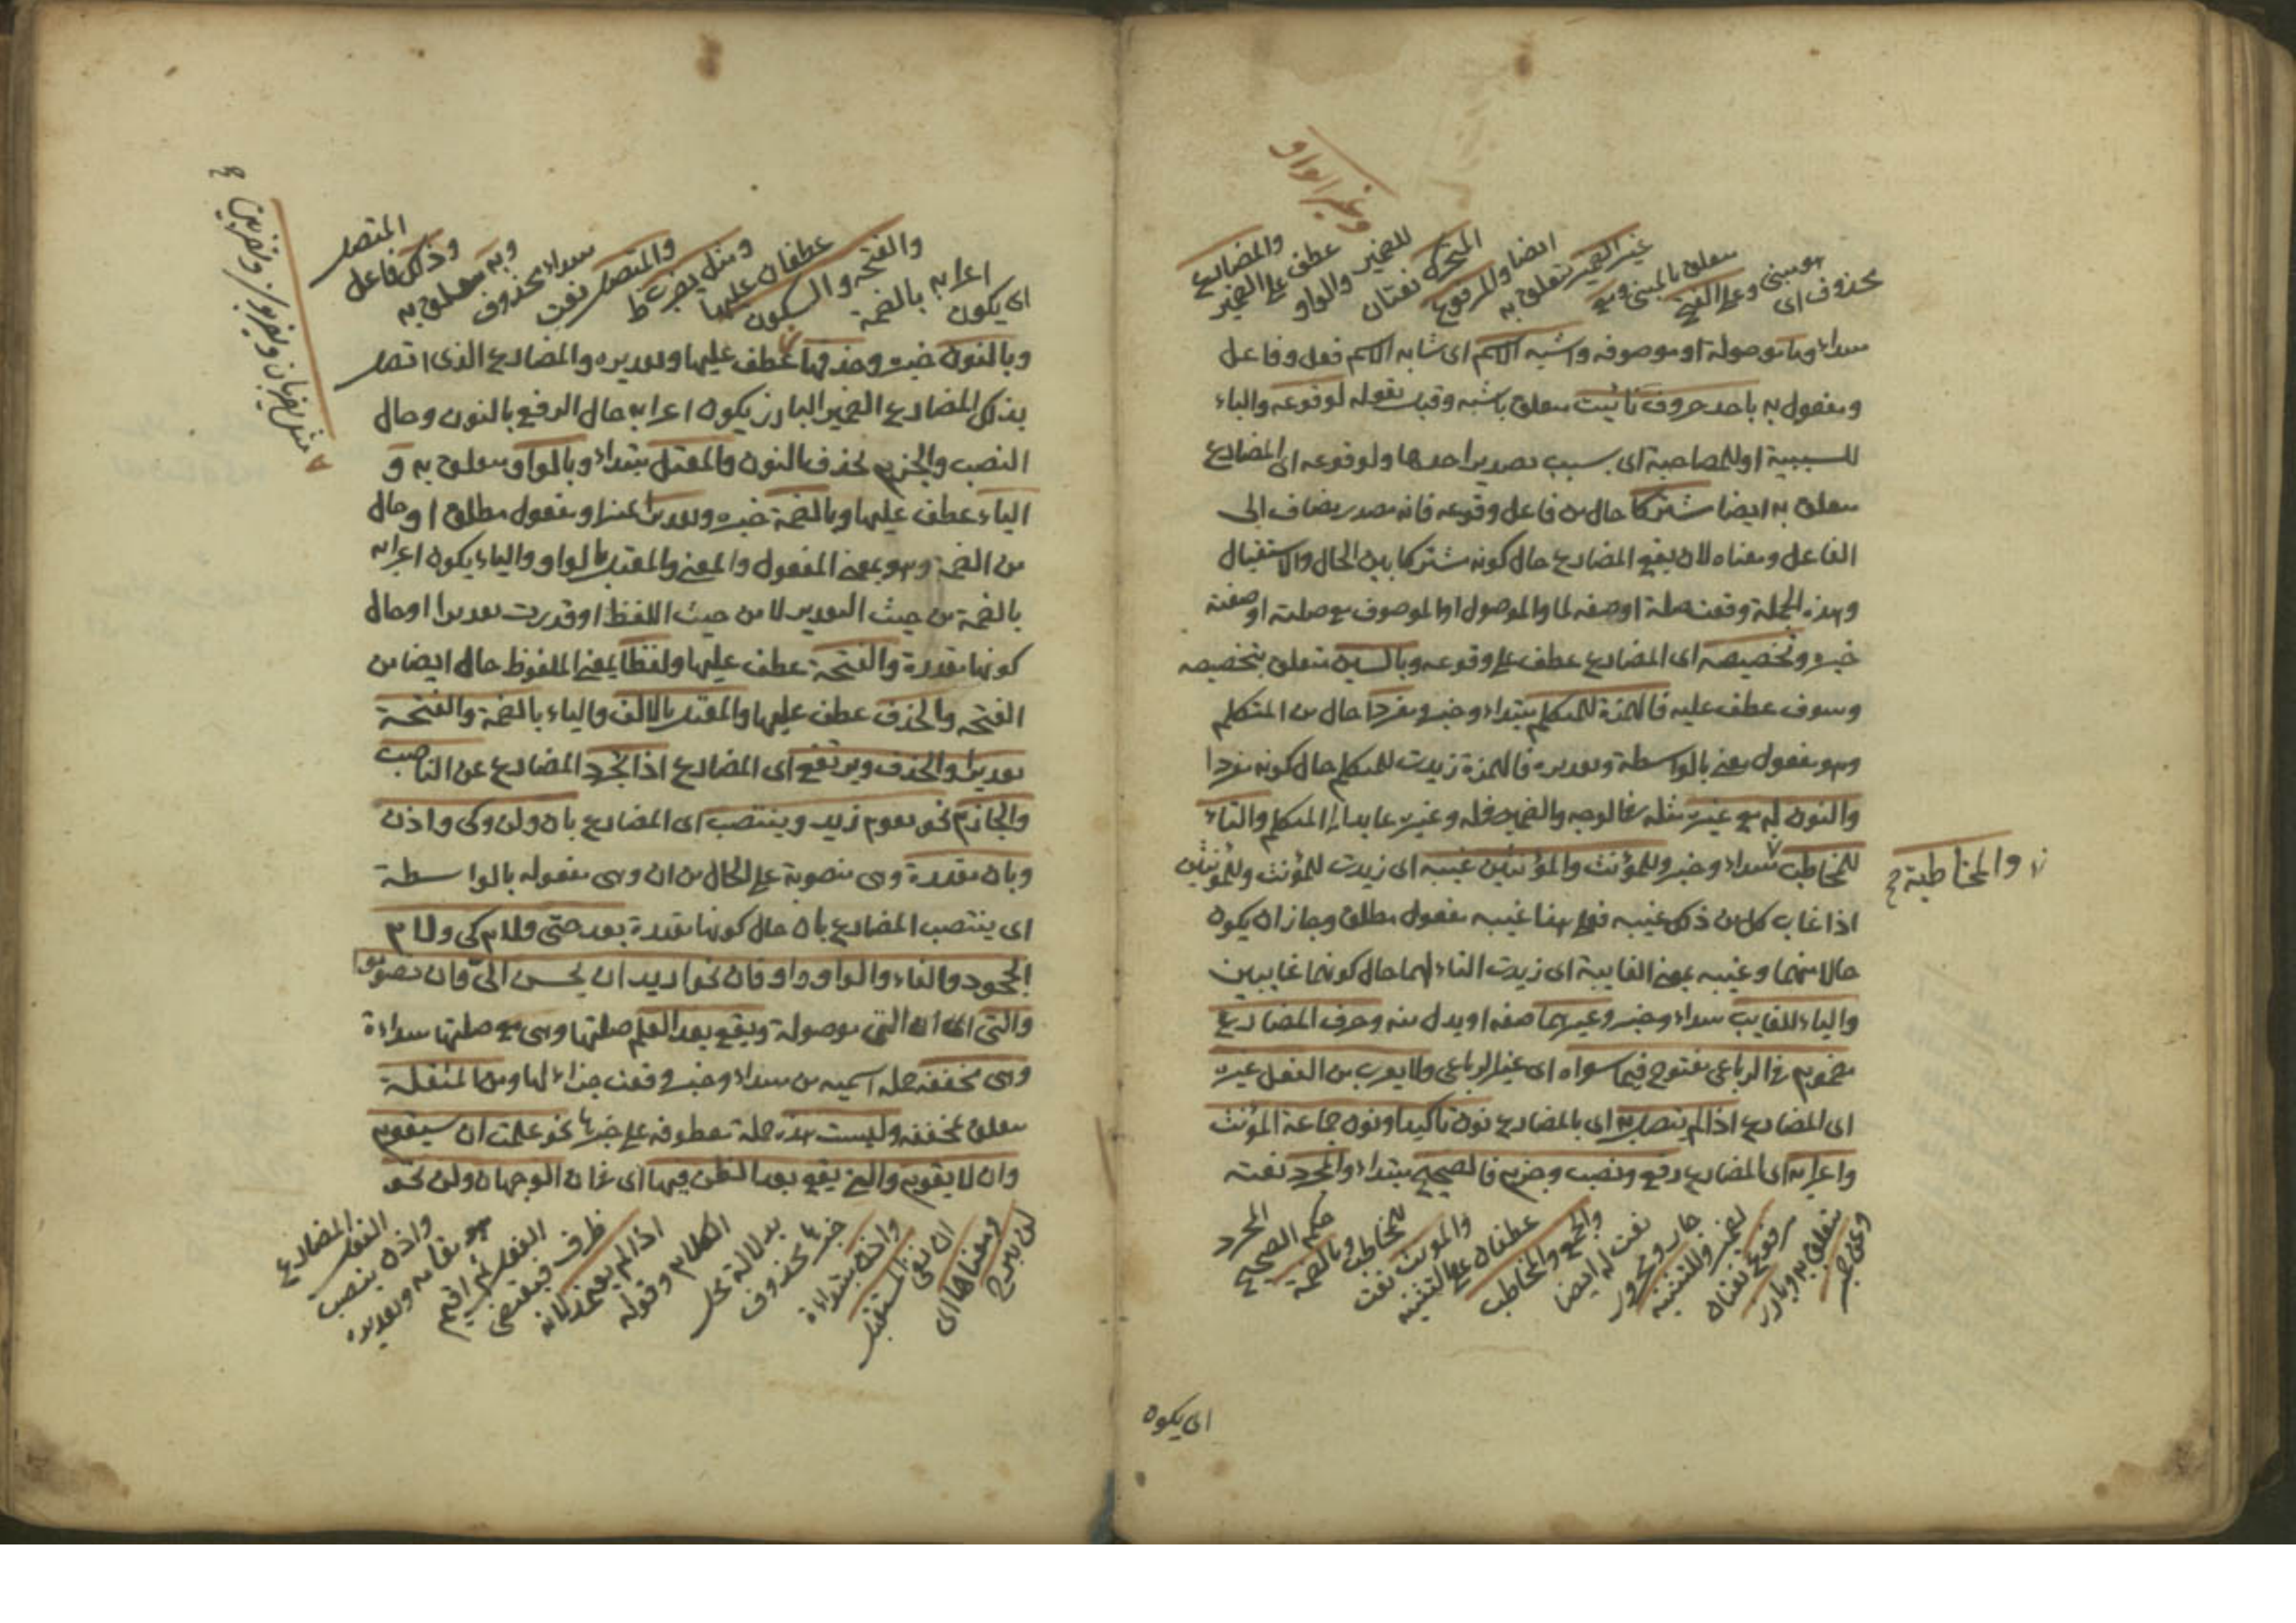 وغير الواو
محذوف اى هو مبنى وعلى الفتح متعلق بالمبنى ومع
غير الضمير متعلق به ايضا والمرفوع
المتحرك نعتان للضمير والواو
عطف على الضمير والمضارع
مبتداء وما موصولة او موصوفة واشبه الاسم اى شابه الاسم فعل وفاعل
ومفعول به باحد حروف نائيت متعلق باشبه وقيل بقوله لوقوعه والباء
للسببية او للمصاحبة اى بسبب تصدير احدها ولوقوعه اى المضارع
متعلق به ايضا مشتركا حال من فاعل وقوعه فانه مصدر مضاف الى
الفاعل ومعناه لان يقع المضارع حال كونه مشتركا بين الحال والاستقبال
وهذه الجملة وقعت صلة او صفة لما والموصول او الموصوف مع صلته او صفته
خبره وتخصيصه اى المضارع عطف على وقوعه وبالسين متعلق بتخصيصه
وسوف عطف عليه فالهمزة للمتكلم مبتداء وخبره مفردا حال من المتكلم
وهو مفعول معنى بالواسطة وتقديره فالهمزة زيدت للمتكلم حال كونه مفردا
والنون له مع غيره مثله فى الوجه والضمير فى له وغيره عايد الى المتكلم والتاء
للمخاطب مبتداء وخبر وللمؤنث والمؤنثين غيبه اى زيدت للمؤنث وللمؤنثين
والمخاطبة
اذا غاب كل من ذلك غيبه فعلى هذا غيبه مفعول مطلق وجاز ان يكون
حالا منهما وغيبه بمعنى الغايبة اى زيدت التاء لهما حال كونهما غايبين
والياء للغايب مبتداء وخبر وغيرهما صفة او بدل منه وحرف المضارع
مضموم فى الرباعى مفتوح فيما سواه اى غير الرباعى ولا يعرب من الفعل غيره
اى المضارع اذا لم يتصل به اى بالمضارع نون تأكيد او نون جماعة المؤنث
واعرابه اى المضارع رفع ونصب وجزم فالصحيح مبتداء والمجرد نعته
وعن ضمير متعلق به وبارز
مرفوع نعتان لضمير وللتثنية
جار ومجرور نعت له ايضا
والجمع والمخاطب عطفان على التثنيه
والمؤنث نعت للمخاطب وبالضمة
حكم الصحيح المجرد
اى يكون
اى يكون اعرابه بالضمة
والفتحة والسكون عطفان عليها
ومثل يضرب ط والمتصل نعت
مبتداء محذوف وبه متعلق به
وذلك فاعل المتصل
مثل يضربان ويضربون وتضربين
وبالنون خبره وحذفها عطف عليها وتقديره والمضارع الذى اتصل
بذلك المضارع الضمير البارز يكون اعرابه حال الرفع بالنون وحال
النصب والجزم بحذف النون والمعتل مبتداء وبالواو متعلق به و
الياء عطف عليها وبالضمة خبره وتقديرا تمييزا ومفعول مطلق او حال
من الضمة وهو بمعنى المفعول والمعنى والمعتل بالواو والياء يكون اعرابه
بالضمة من حيث التقدير لا من حيث اللفظ او قدرت تقديرا او حال
كونها مقدرة والفتحة عطف عليها ولفظا بمعنى الملفوظ حال ايضا من
الفتحة والحذف عطف عليها والمعتل بالالف والياء بالضمة والفتحة
تقديرا والحذف ويرتفع اى المضارع اذا تجرد المضارع عن الناصب
والجازم نحو يقوم زيد وينتصب اى المضارع بان ولن وكى واذن
وبان مقدرة وهى منصوبة على الحال من ان وهى مفعوله بالواسطة
اى ينتصب المضارع بان حال كونها مقدرة بعد حتى ولام كى ولام
الجحود والفاء والواو واو فان نحو اريد ان يحسن الىّ وان تصوموا
والتى اى ان التى موصولة ويقع بعد العلم صلتها وهى مع صلتها مبتداءة
وهى مخففة جملة اسميه من مبتداء وخبره وقعت جزاء لها ومن المثقلة
متعلق بمخففه وليست هذه جملة معطوفة على خبرها نحو علمت ان سيقوم
وان لا يقوم والتى يقع بعد الظن فيها اى فى ان الوجهان ولن نحو
لن يبرح ومعناها اى
ان نفى المستقبل
واذن مبتداءة
خبرها محذوف
بدلالة محل الكلام وقوله
اذا لم يعتمد لانه
ظرف فيقتضى الفعل ثم اقيم
هو مقامه وتقديره
واذن ينصب الفعل المضارع